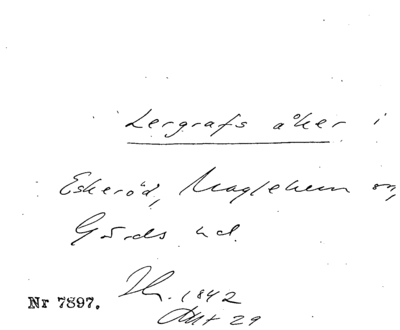 Lergrafs åker i
Eskeröd, Maglehem sn,
Gärds hd.
1842
Nr 7897.
29